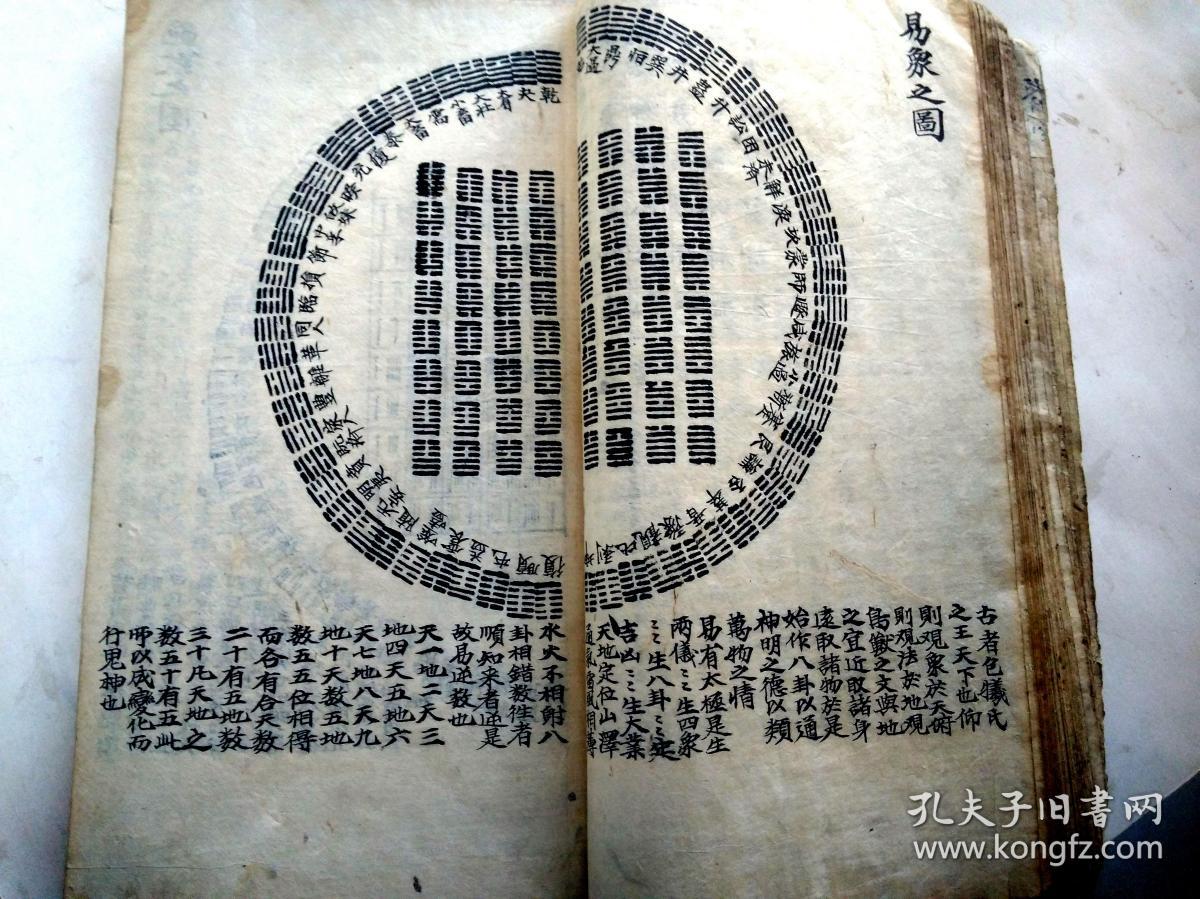 易象之圖
乾
夬
大有
大壯
小畜
需
大畜
泰
履
兌
睽
歸妹
中孚
節
損
臨
同人
革
離
豐
家人
既濟
賁
明夷
无妄
隨
噬嗑
震
益
屯
頤
復
大過
鼎
恒
巽
井
蠱
升
訟
困
未濟
解
渙
坎
蒙
師
遯
咸
旅
小過
漸
蹇
艮
謙
否
萃
晉
豫
觀
比
剝
古者包犧氏
之王天下也仰
則觀象於天俯
則观法於地观
鳥獸之文與地
之宜近取諸身
遠取諸物於是
始作八卦以通
神明之德以類
萬物之情
易有太極是生
兩儀〻〻生四象
〻〻生八卦〻〻定
吉凶〻〻生大業
天地定位山澤
通氣雷風相薄
水火不相射八
卦相錯数往者
順知來者逆是
故易逆数也
天一地二天三
地四天五地六
天七地八天九
地十天数五地
数五五位相得
而各有合天数
二十有五地数
三十凡天地之
数五十有五此
所以成變化而
行鬼神也
孔夫子旧書网
www.kongfz.com